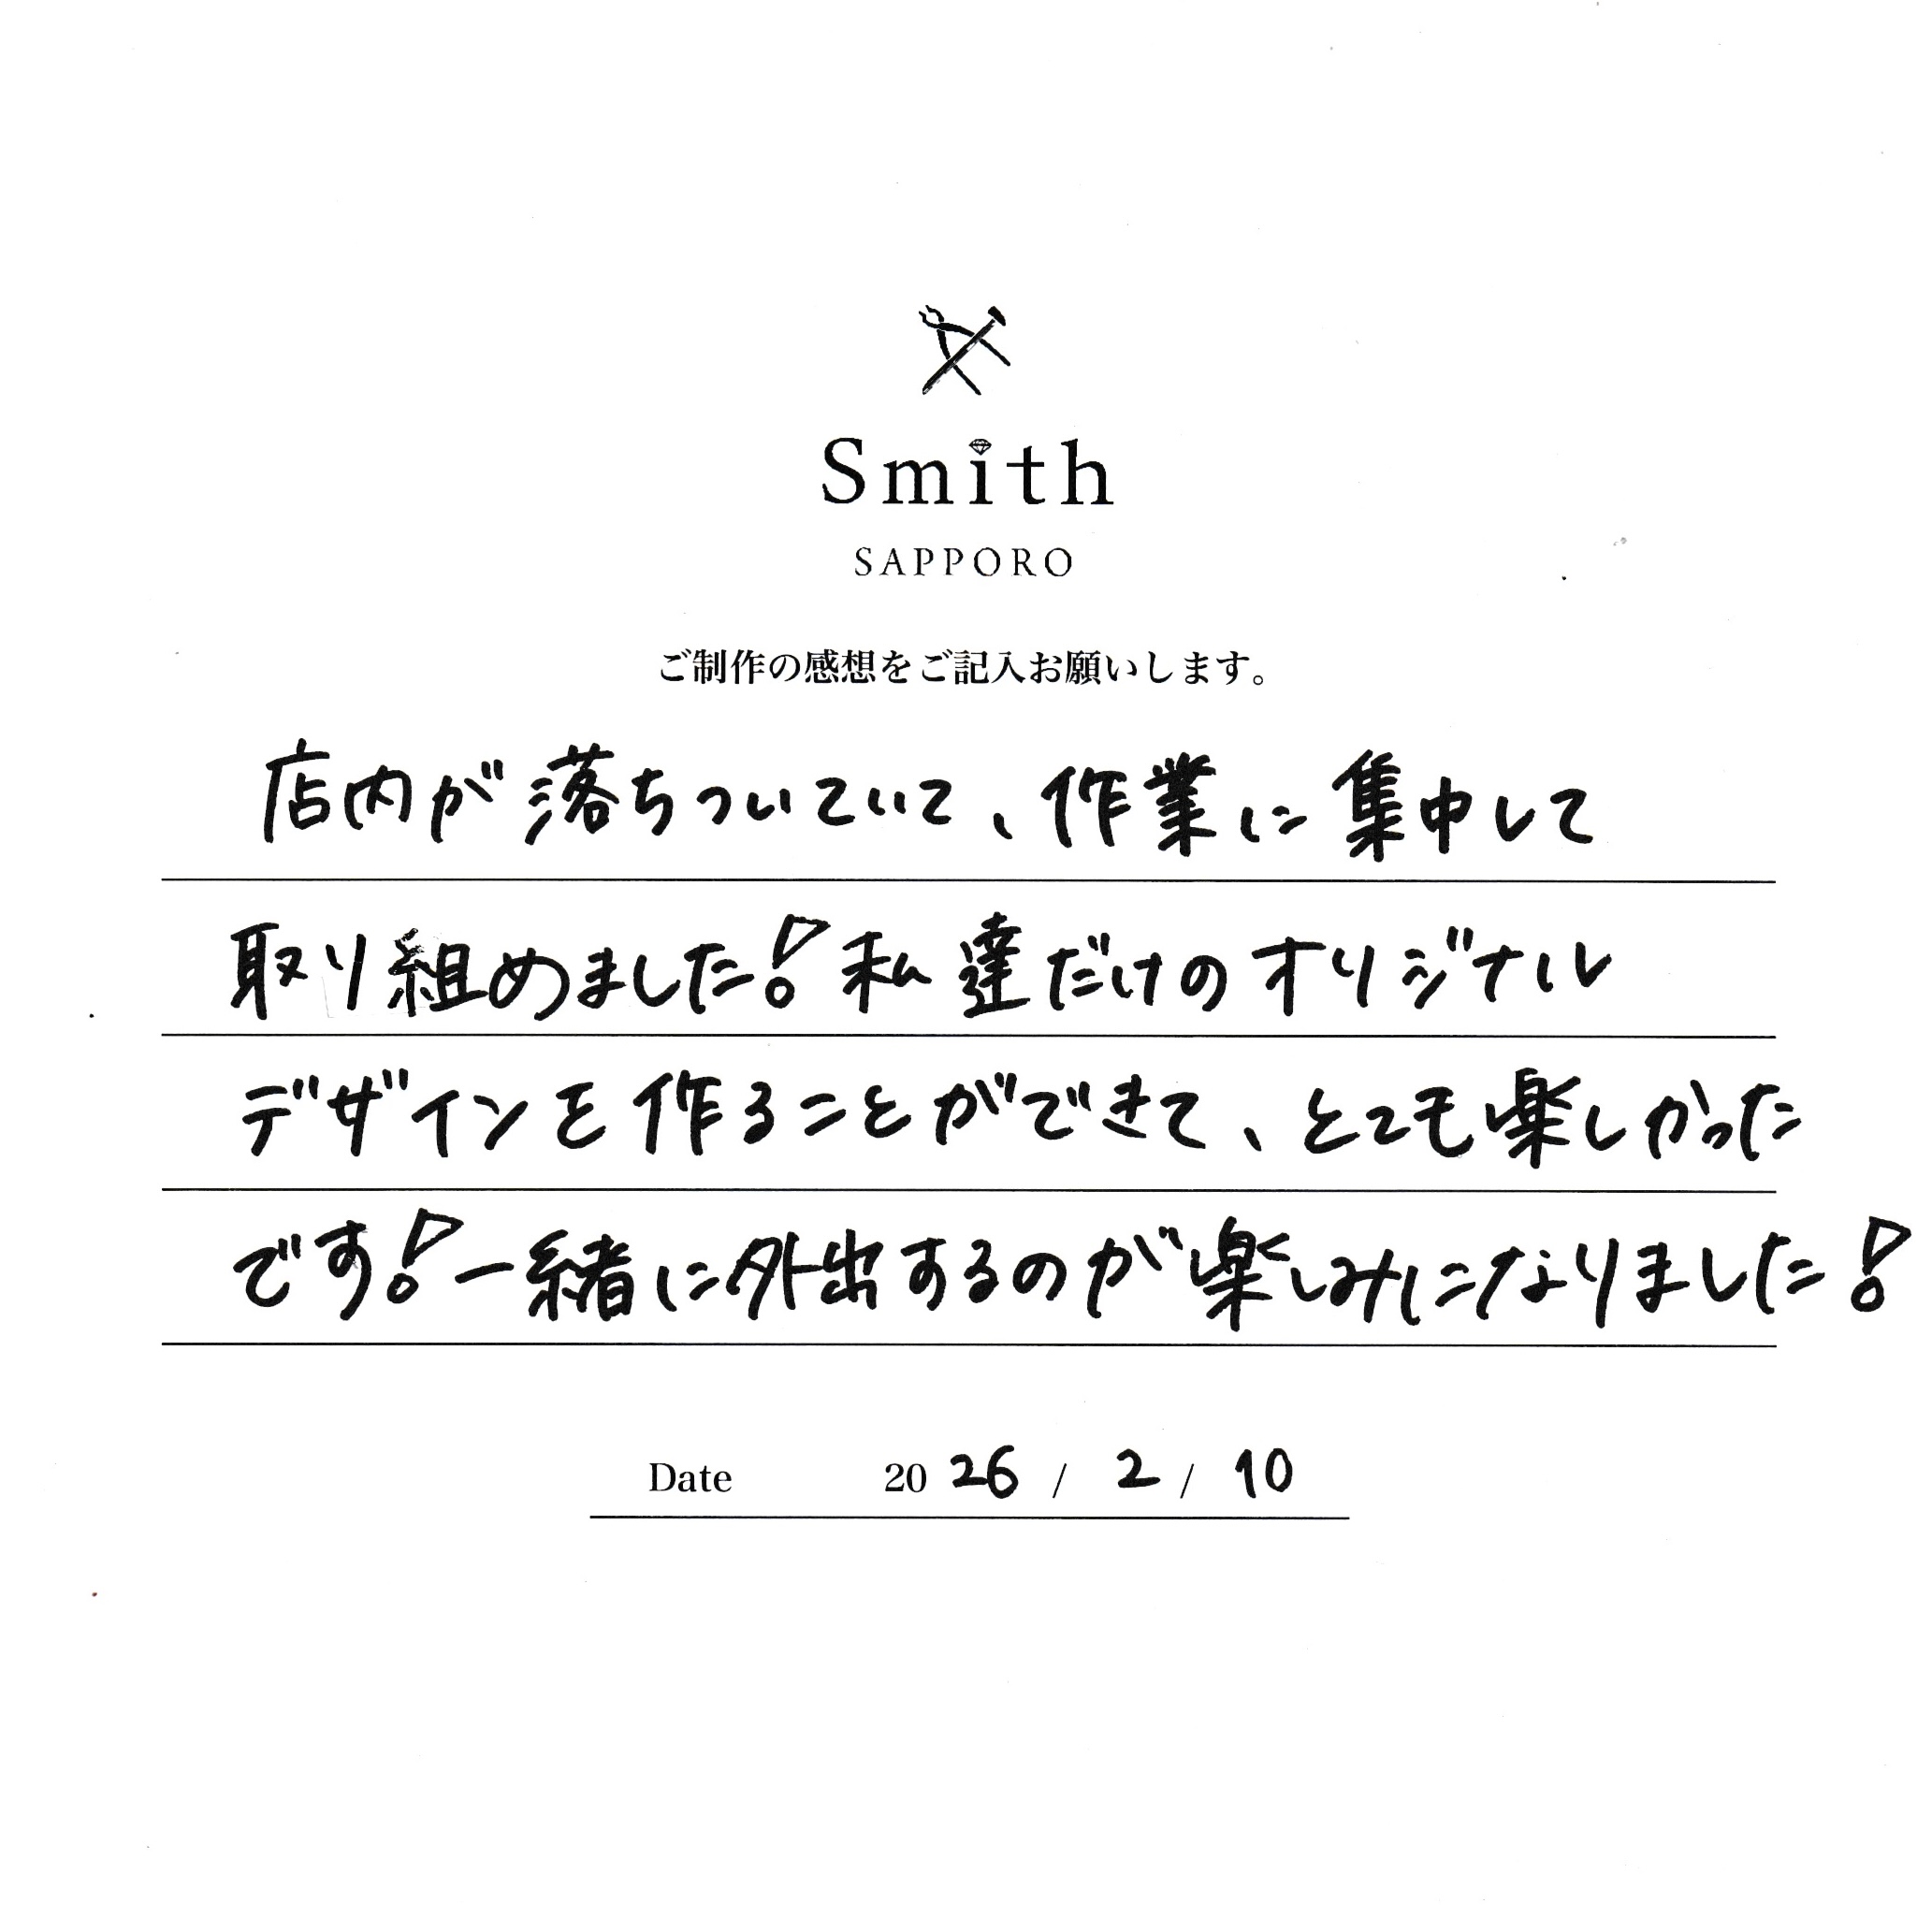 Smith
SAPPORO
ご制作の感想をご記入お願いします。
店内が落ちついていて、作業に集中して
取り組めました!私達だけのオリジナル
デザインを作ることができて、とても楽しかった
です!一緒に外出するのが楽しみになりました!
Date 2026 / 2 / 10